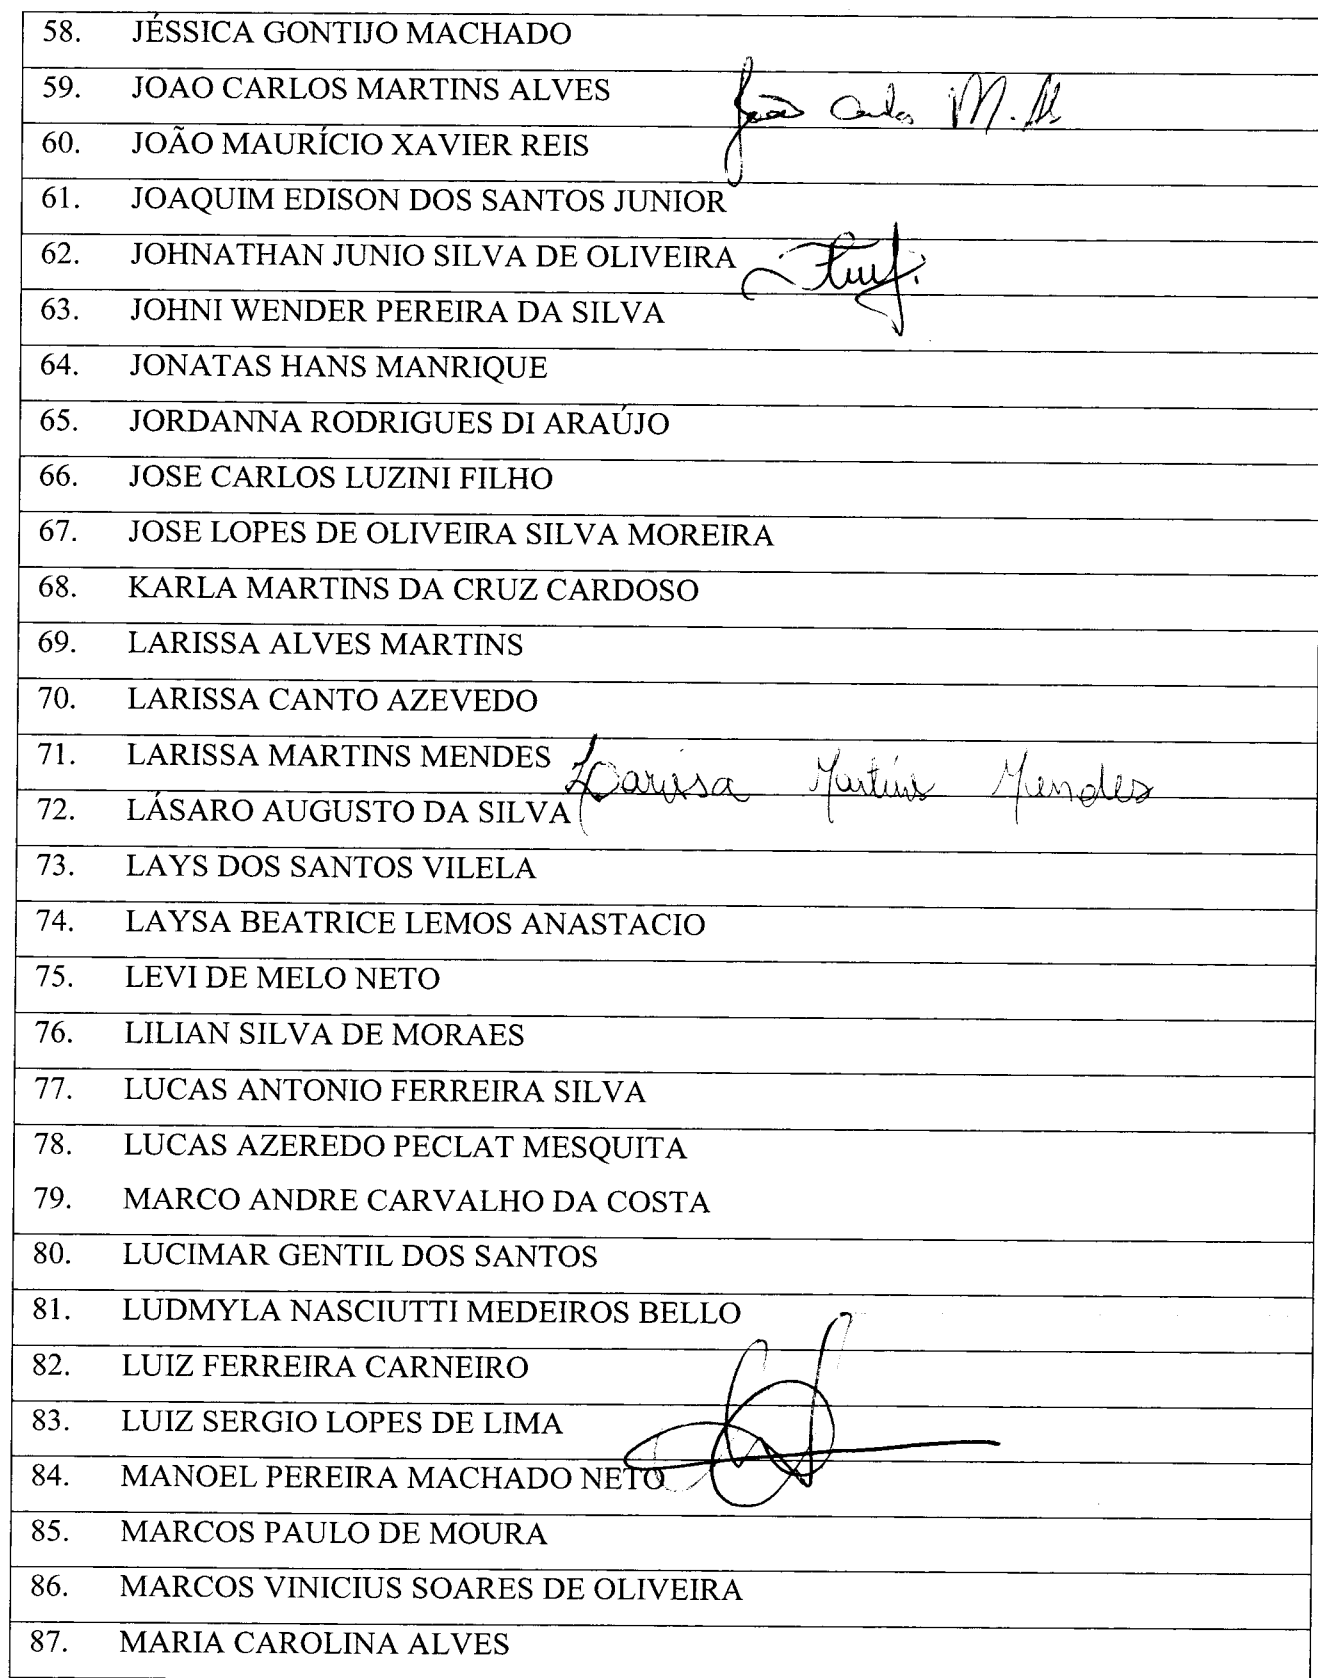 58. JÉSSICA GONTIJO MACHADO
59. JOAO CARLOS MARTINS ALVES João Carlos M.
60. JOÃO MAURÍCIO XAVIER REIS
61. JOAQUIM EDISON DOS SANTOS JUNIOR
62. JOHNATHAN JUNIO SILVA DE OLIVEIRA
63. JOHNI WENDER PEREIRA DA SILVA
64. JONATAS HANS MANRIQUE
65. JORDANNA RODRIGUES DI ARAÚJO
66. JOSE CARLOS LUZINI FILHO
67. JOSE LOPES DE OLIVEIRA SILVA MOREIRA
68. KARLA MARTINS DA CRUZ CARDOSO
69. LARISSA ALVES MARTINS
70. LARISSA CANTO AZEVEDO
71. LARISSA MARTINS MENDES Larissa Martins Mendes
72. LÁSARO AUGUSTO DA SILVA
73. LAYS DOS SANTOS VILELA
74. LAYSA BEATRICE LEMOS ANASTACIO
75. LEVI DE MELO NETO
76. LILIAN SILVA DE MORAES
77. LUCAS ANTONIO FERREIRA SILVA
78. LUCAS AZEREDO PECLAT MESQUITA
79. MARCO ANDRE CARVALHO DA COSTA
80. LUCIMAR GENTIL DOS SANTOS
81. LUDMYLA NASCIUTTI MEDEIROS BELLO
82. LUIZ FERREIRA CARNEIRO
83. LUIZ SERGIO LOPES DE LIMA
84. MANOEL PEREIRA MACHADO NETO
85. MARCOS PAULO DE MOURA
86. MARCOS VINICIUS SOARES DE OLIVEIRA
87. MARIA CAROLINA ALVES